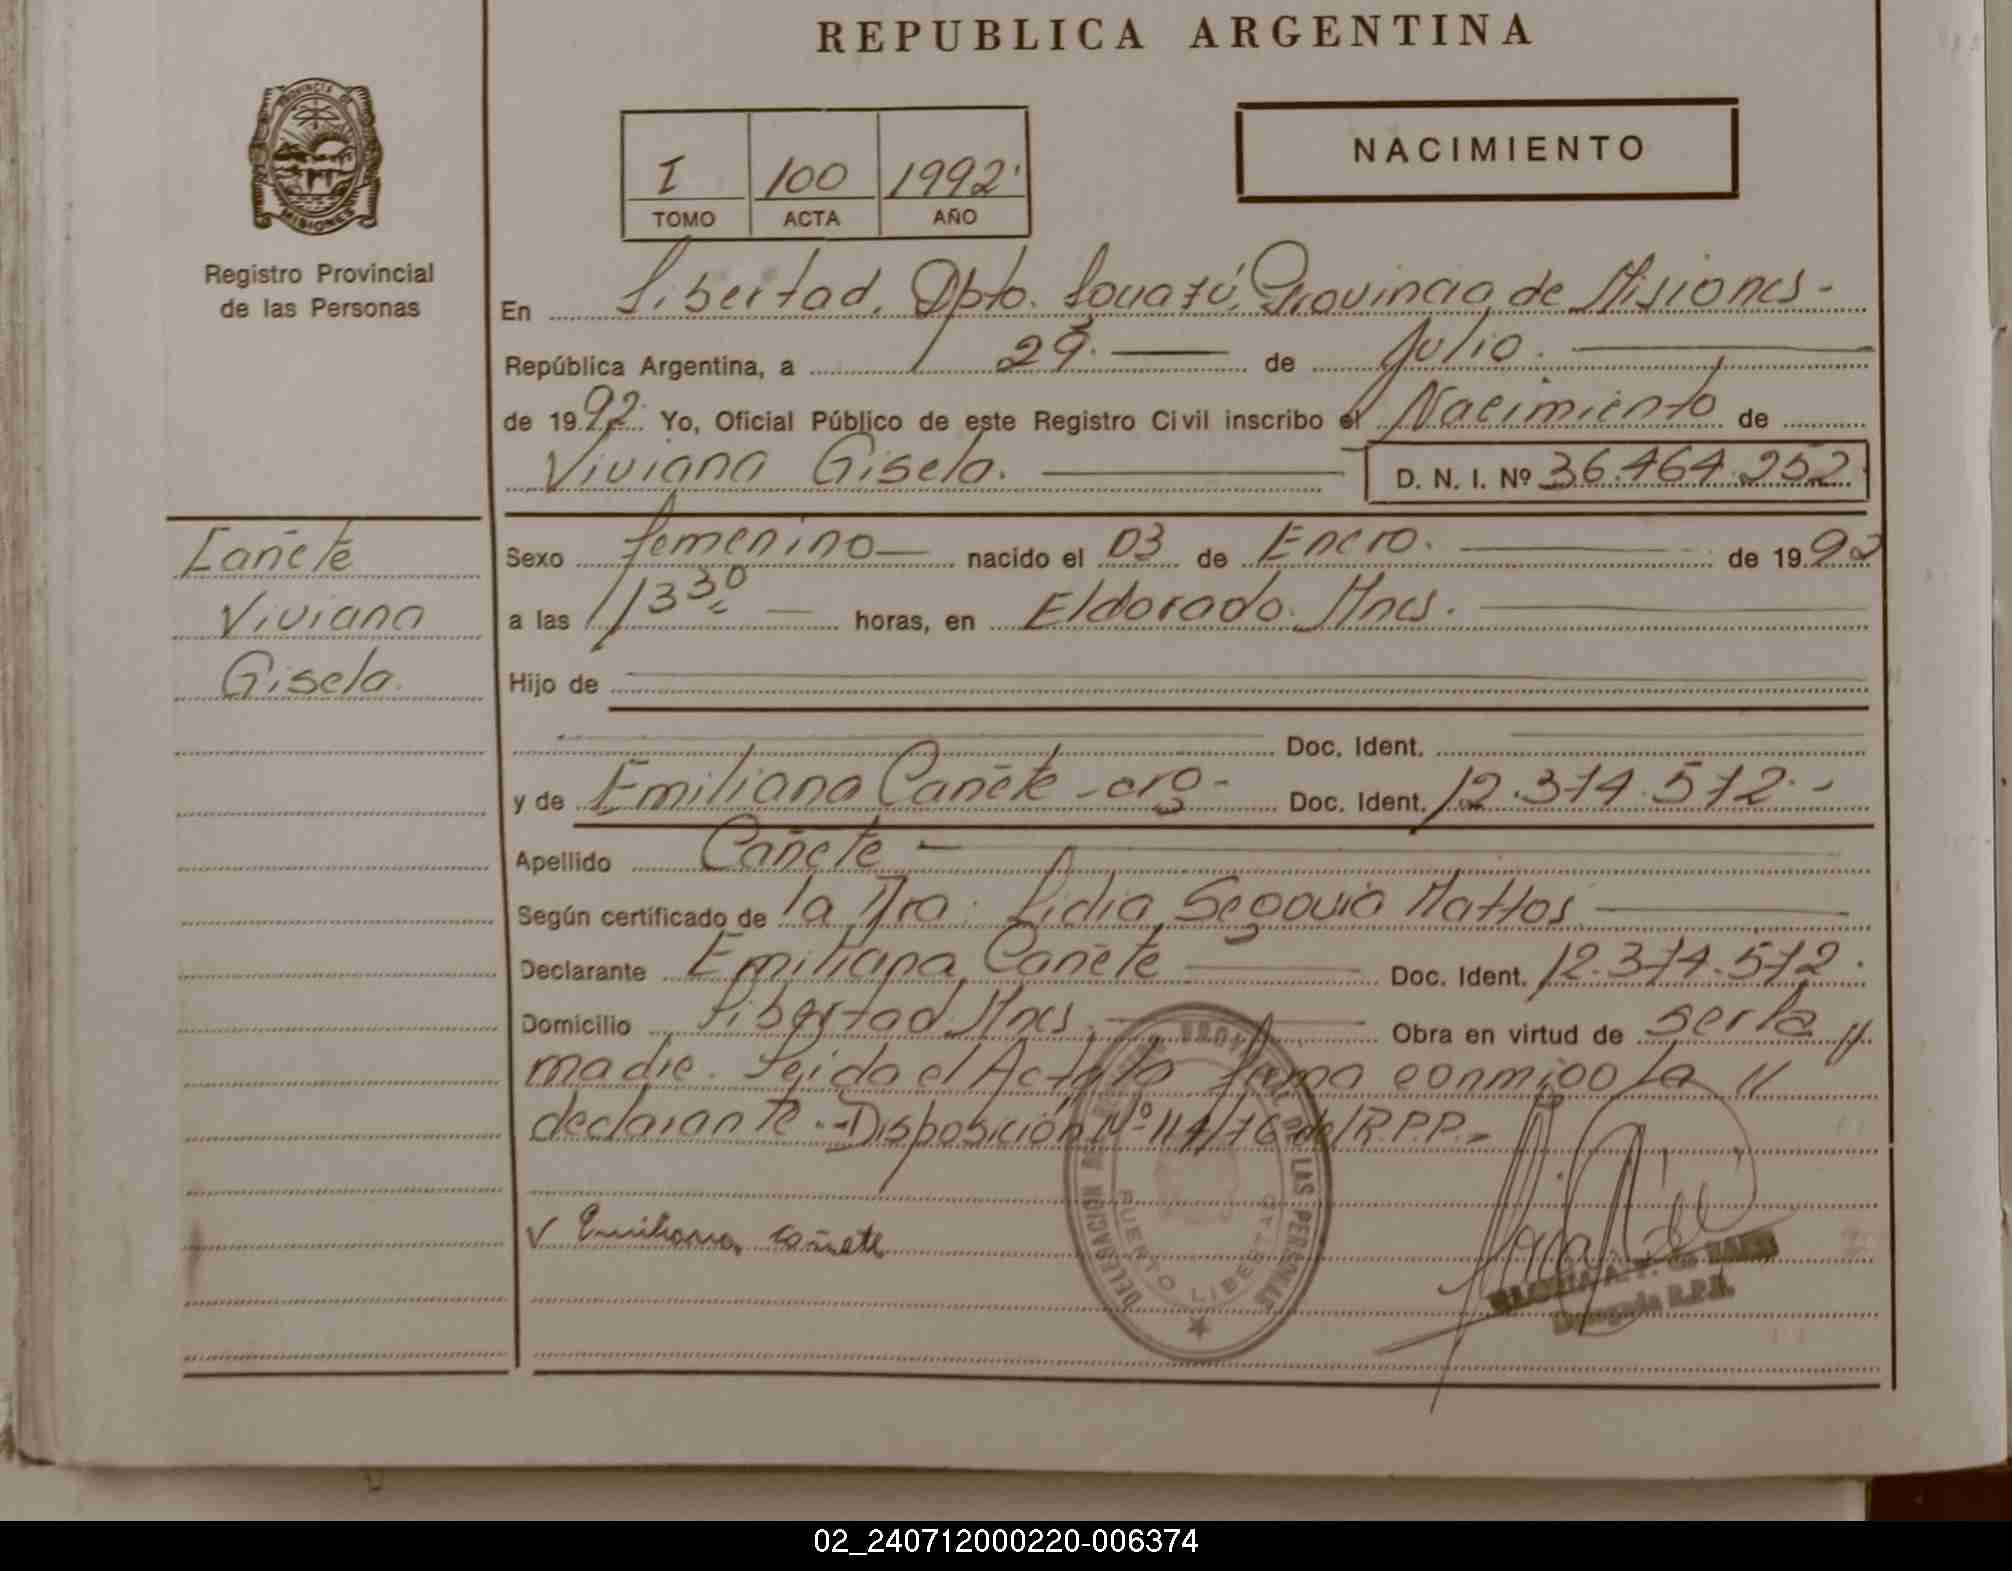 REPUBLICA ARGENTINA
PROVINCIA DE
MISIONES
Registro Provincial
de las Personas
I 100 1992
TOMO ACTA AÑO
NACIMIENTO
En Libertad, Dpto. Iguazú, Provincia de Misiones-
República Argentina, a 29. de Julio.
de 1992. Yo, Oficial Público de este Registro Civil inscribo el Nacimiento de
Viviana Gisela. D. N. I. Nº 36.464.252.
Cañete
Viviana
Gisela.
Sexo femenino nacido el 03 de Enero. de 1992
a las 1330 horas, en Eldorado. Mnes.
Hijo de
Doc. Ident.
y de Emiliana Cañete - arg - Doc. Ident. 12.374.572.-
Apellido Cañete
Según certificado de la Dra. Lidia Segovia Mattos
Declarante Emiliana Cañete Doc. Ident. 12.374.572.
Domicilio Libertad Mnes. Obra en virtud de ser la //
madre. Leida el Acta la firma conmigo la //
declarante.- Disposición Nº 114/76 del R.P.P.-
v Emiliana Cañete
DELEGACION DEL REGISTRO PROVINCIAL DE LAS PERSONAS
PUERTO LIBERTAD
GLORIA A. F. de
Delegada R.P.P.
02_240712000220-006374